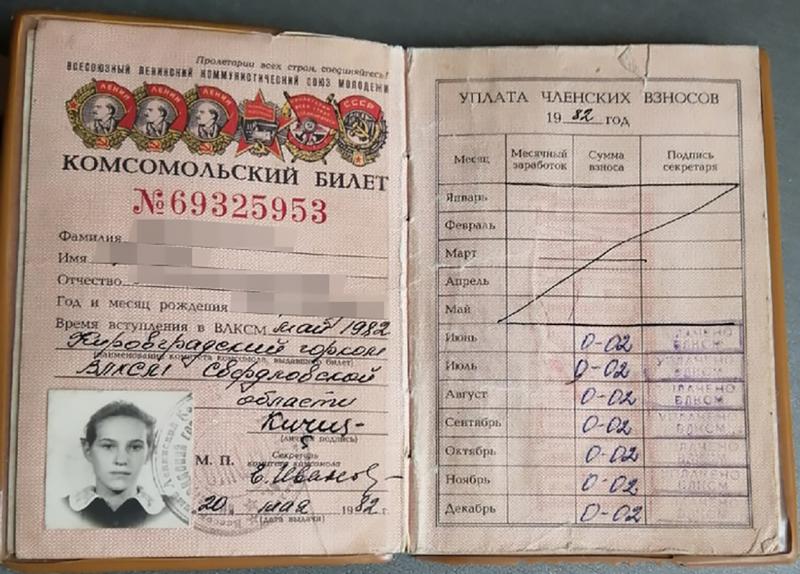 Пролетарии всех стран, соединяйтесь!
ВСЕСОЮЗНЫЙ ЛЕНИНСКИЙ КОММУНИСТИЧЕСКИЙ СОЮЗ МОЛОДЕЖИ
ЛЕНИН ЛЕНИН ЛЕНИН СССР
КОМСОМОЛЬСКИЙ БИЛЕТ
№69325953
Фамилия
Имя
Отчество
Год и месяц рождения
Время вступления в ВЛКСМ май 1982
Кировградский горком
(наименование комитета комсомола, выдавшего билет)
ВЛКСМ Свердловской
области
(личная подпись)
М. П. Секретарь
комитета комсомола
Е. Иванов
20 мая 1982 г.
(дата выдачи)
УПЛАТА ЧЛЕНСКИХ ВЗНОСОВ
1982 год
Месяц Месячный заработок Сумма взноса Подпись секретаря
Январь
Февраль
Март
Апрель
Май
Июнь 0-02 УПЛАЧЕНО ВЛКСМ
Июль 0-02 УПЛАЧЕНО ВЛКСМ
Август 0-02 УПЛАЧЕНО ВЛКСМ
Сентябрь 0-02 УПЛАЧЕНО ВЛКСМ
Октябрь 0-02 УПЛАЧЕНО ВЛКСМ
Ноябрь 0-02 УПЛАЧЕНО ВЛКСМ
Декабрь 0-02